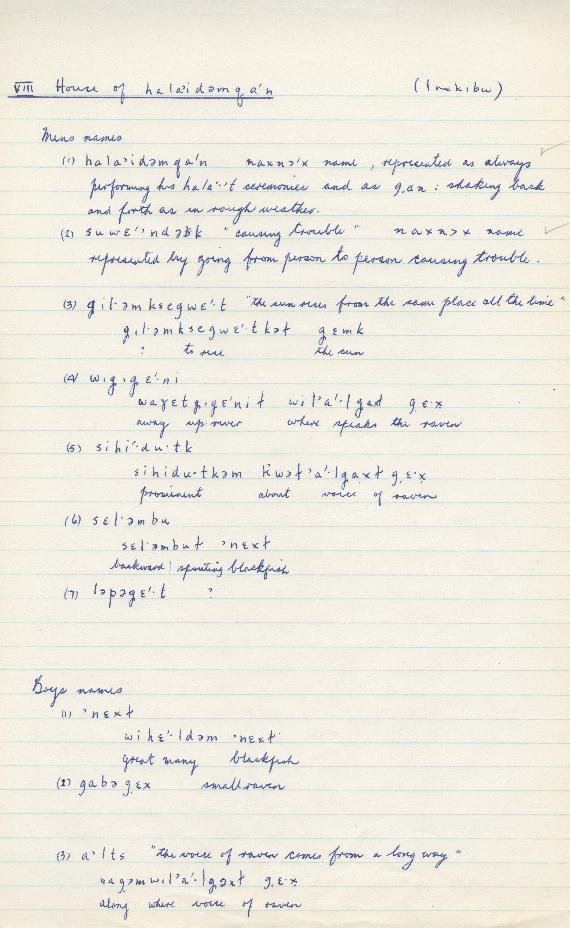 VIII House of hala'idəmqa'n (lnakibu)
Mens names
(1) hala'idəmqa'n naxnɔ'x name, represented as always
performing his hala'·'t ceremonies and as g.an : shaking back
and forth as in rough weather.
(2) suwɛ'·ndəsk "causing trouble" naxnɔx name
represented by going from person to person causing trouble.
(3) gıl·əmksɛgwɛ'·t "the sun rises from the same place all the time"
g.ıl·əmksɛgwɛ'·tkət gɛmk
? to rise the sun
(4) wıg.ıg.ɛ'ni
wayɛtg.ıg.ɛ'nit wil'a'·lgaxt g.ɛ·x
away up river where speaks the raven
(5) sihi'·du·tk
sihidu·tkəm k'wət'a'·lgaxt g.ɛ·x.
prominent about voice of raven
(6) sɛl·əmbu
sɛl·əmbut 'nɛxt
backward | spouting blackfish
(7) ləpəgɛ'·t ?
Boys names
(1) 'nɛxt
wihɛ'·ldəm 'nɛxt
great many blackfish
(2) gabəg.ɛx small raven
(3) a'lts "the voice of raven comes from a long way"
nag.əmwil'a'·lg.axt g.ɛ·x
along where voice of raven